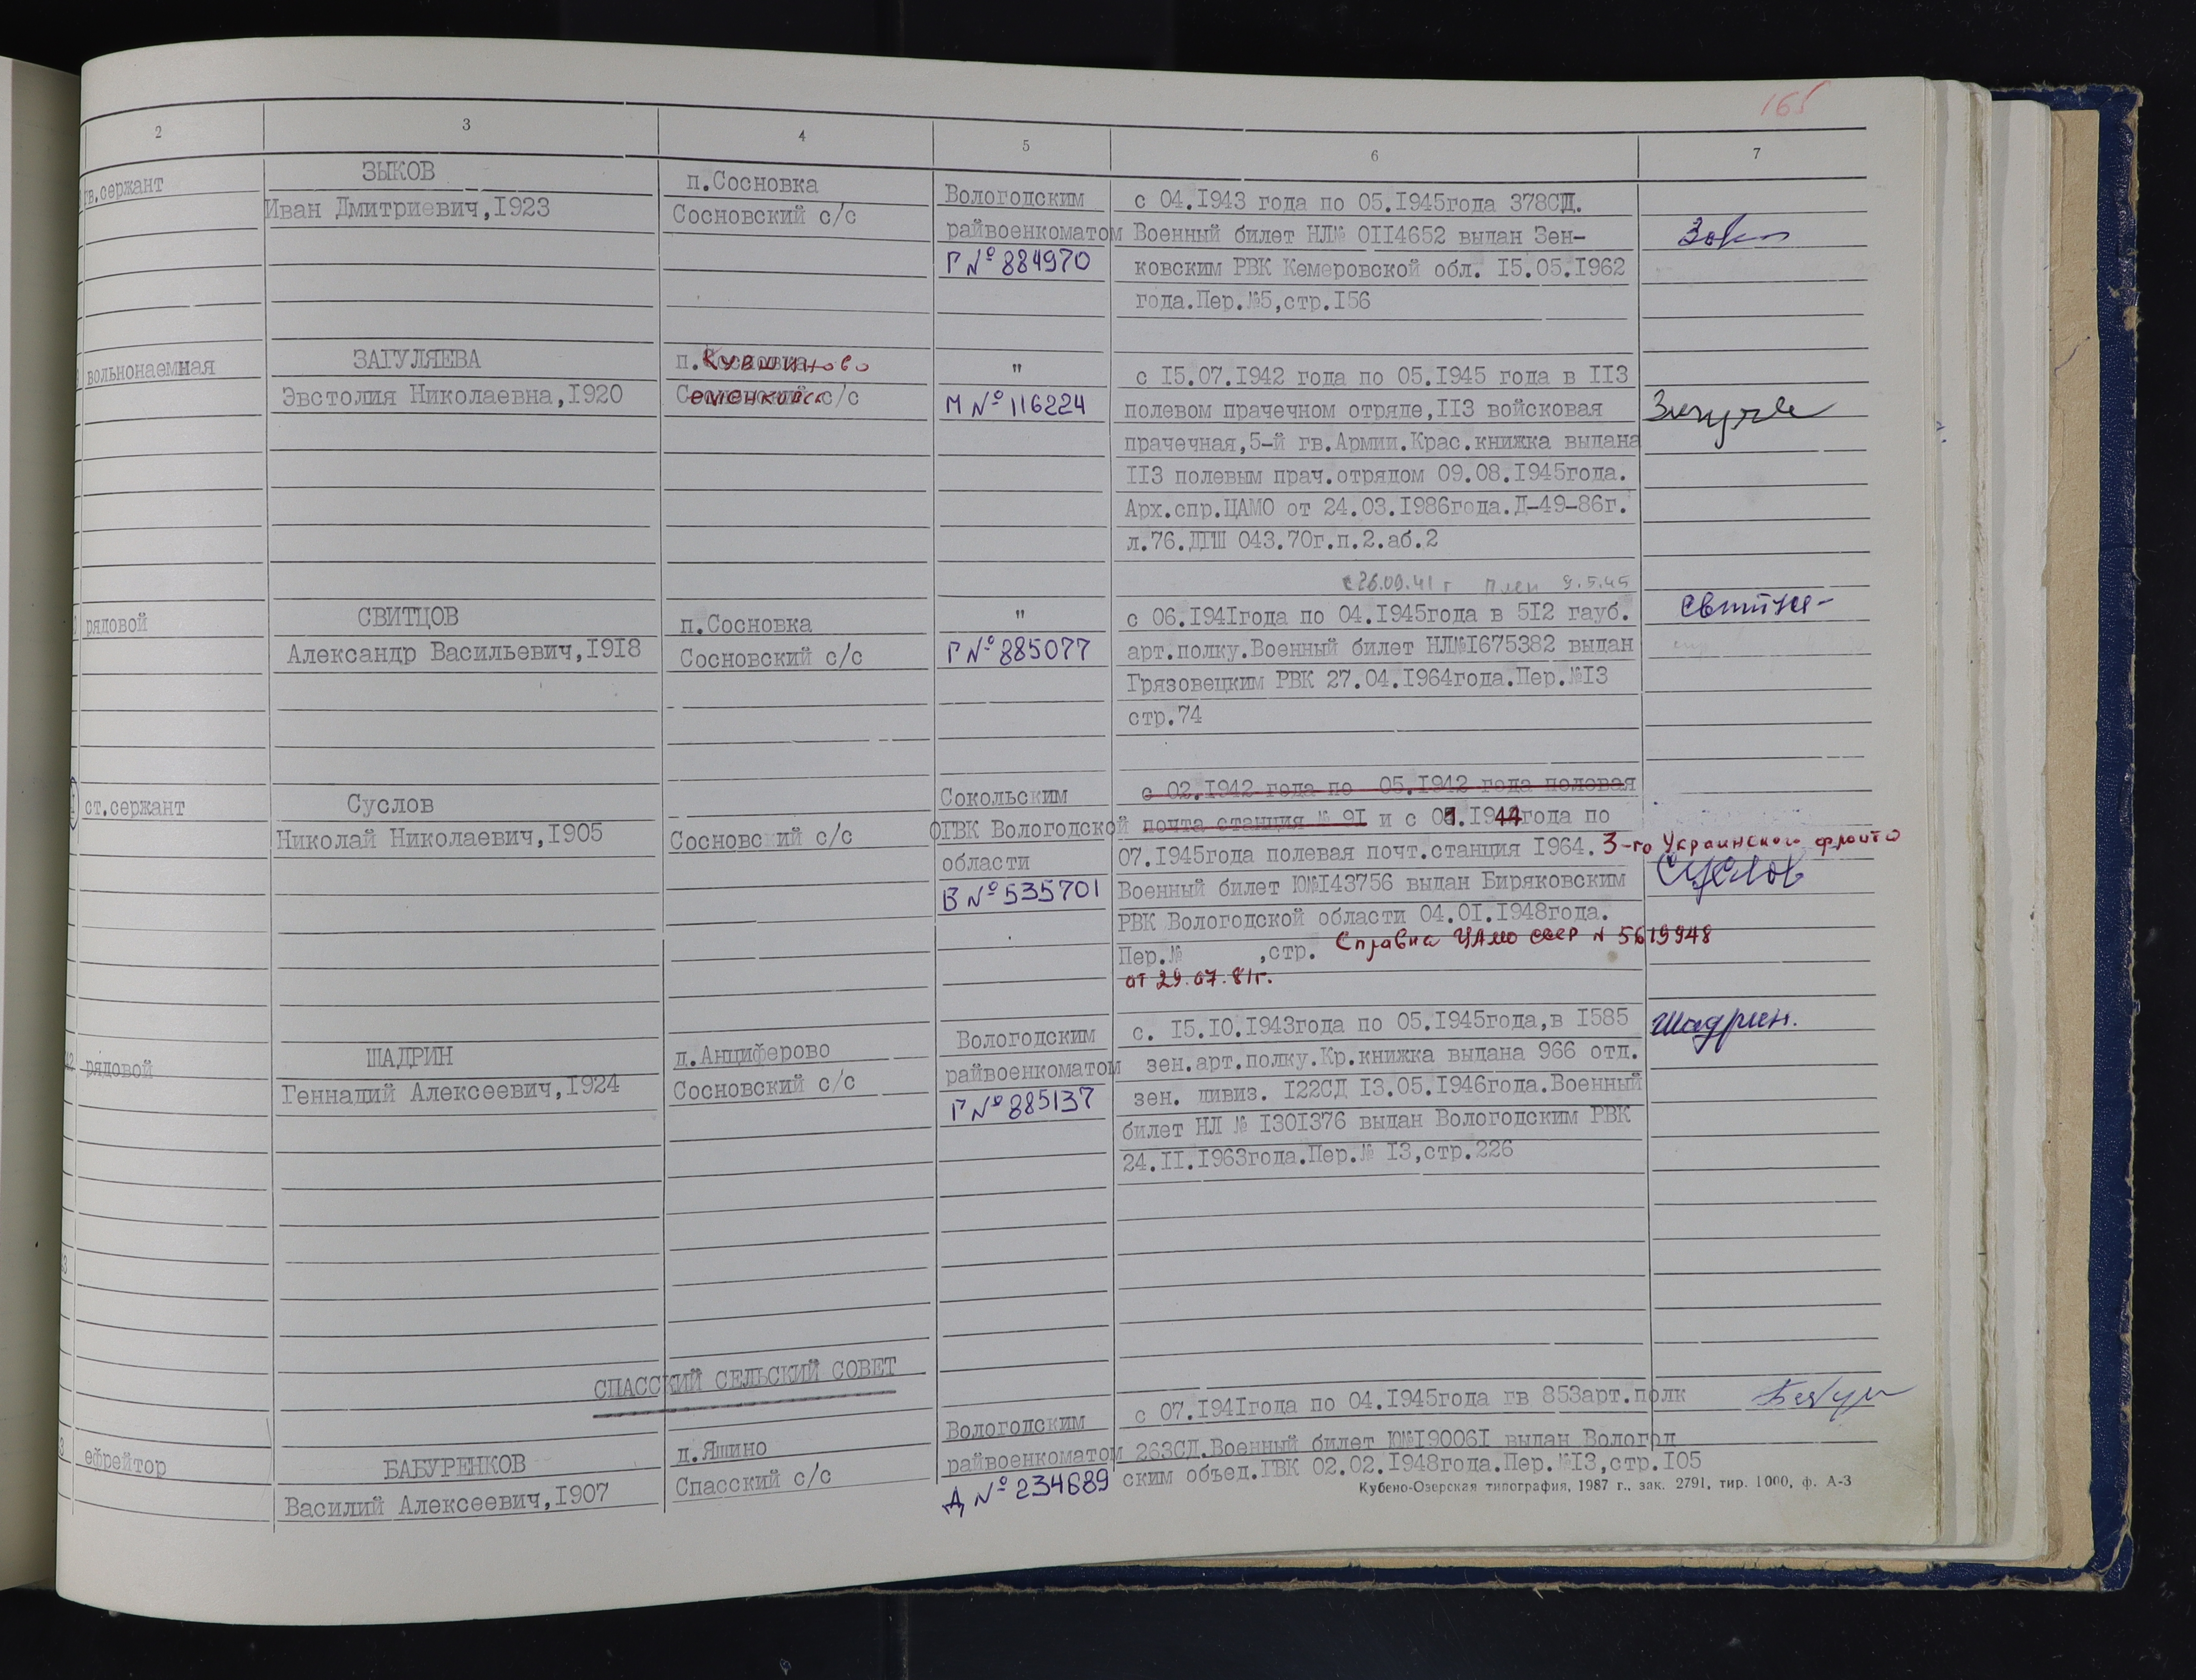 165
2 3 4 5 6 7
гв.сержант
ЗЫКОВ
Иван Дмитриевич,I923
п.Сосновка
Сосновский с/с
Вологодским
райвоенкоматом
Г № 884970
с 04.I943 года по 05.I945года 378СД.
Военный билет НЛ№ 0II4652 выдан Зен-
ковским РВК Кемеровской обл. I5.05.I962
года.Пер.№5,стр.I56
вольнонаемная
ЗАГУЛЯЕВА
Эвстолия Николаевна,I920
п.Кувшиново
Семенковск с/с
"
М № 116224
с I5.07.I942 года по 05.I945 года в II3
полевом прачечном отряде,II3 войсковая
прачечная,5-й гв.Армии.Крас.книжка выдана
II3 полевым прач.отрядом 09.08.I945года.
Арх.спр.ЦАМО от 24.03.I986года.Д-49-86г.
л.76.ДГШ 043.70г.п.2.аб.2
с 26.09.41 г плен 9.5.45
рядовой
СВИТЦОВ
Александр Васильевич,I9I8
п.Сосновка
Сосновский с/с
"
Г № 885077
с 06.I94Iгода по 04.I945года в 5I2 гауб.
арт.полку.Военный билет НЛ№I675382 выдан
Грязовецким РВК 27.04.I964года.Пер.№I3
стр.74
ст.сержант
Суслов
Николай Николаевич,I905
Сосновский с/с
Сокольским
ОГВК Вологодской
области
В № 535701
с 02.I942 года по 05.I942 года полевая
почта станция № 9I и с 01.I944года по
07.I945года полевая почт.станция I964. 3-го Украинского фронта
Военный билет Ю№I43756 выдан Биряковским
РВК Вологодской области 04.0I.I948года.
Пер.№ ,стр. Справка ЦАМО СССР № 5619948
от 29.07.81г.
Суслов
42
рядовой
ШАДРИН
Геннадий Алексеевич,I924
д.Анциферово
Сосновский с/с
Вологодским
райвоенкоматом
Г № 885137
с. I5.I0.I943года по 05.I945года,в I585
зен.арт.полку.Кр.книжка выдана 966 отд.
зен. дивиз. I22СД I3.05.I946года.Военный
билет НЛ № I30I376 выдан Вологодским РВК
24.II.I963года.Пер.№ I3,стр.226
Шадрин.
СПАССКИЙ СЕЛЬСКИЙ СОВЕТ
ефрейтор
БАБУРЕНКОВ
Василий Алексеевич,I907
д.Яшино
Спасский с/с
Вологодским
райвоенкоматом
Д № 234689
с 07.I94Iгода по 04.I945года гв 853арт.полк
263СД.Военный билет Ю№I9006I выдан Вологод
ским объед.ГВК 02.02.I948года.Пер.№I3,стр.I05
Кубено-Озерская типография, 1987 г., зак. 2791, тир. 1000, ф. А-3